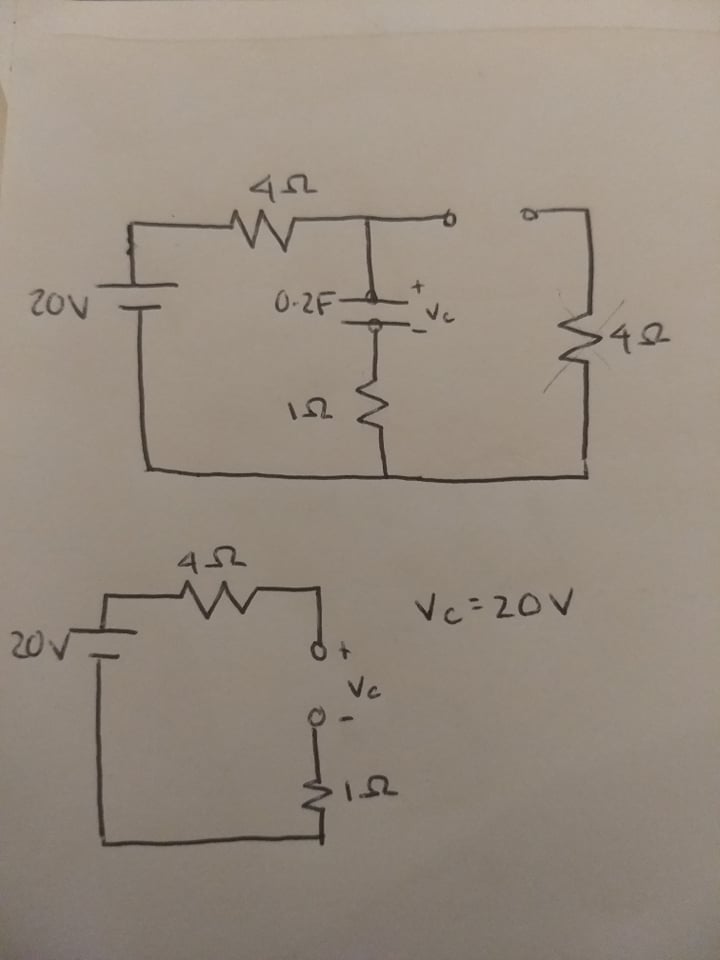 4Ω
20V
0.2F
+
Vc
-
4Ω
1Ω
4Ω
20V
+
Vc
-
1Ω
Vc=20V